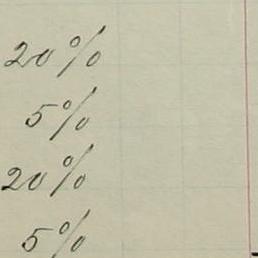 20%
5%
20%
5%